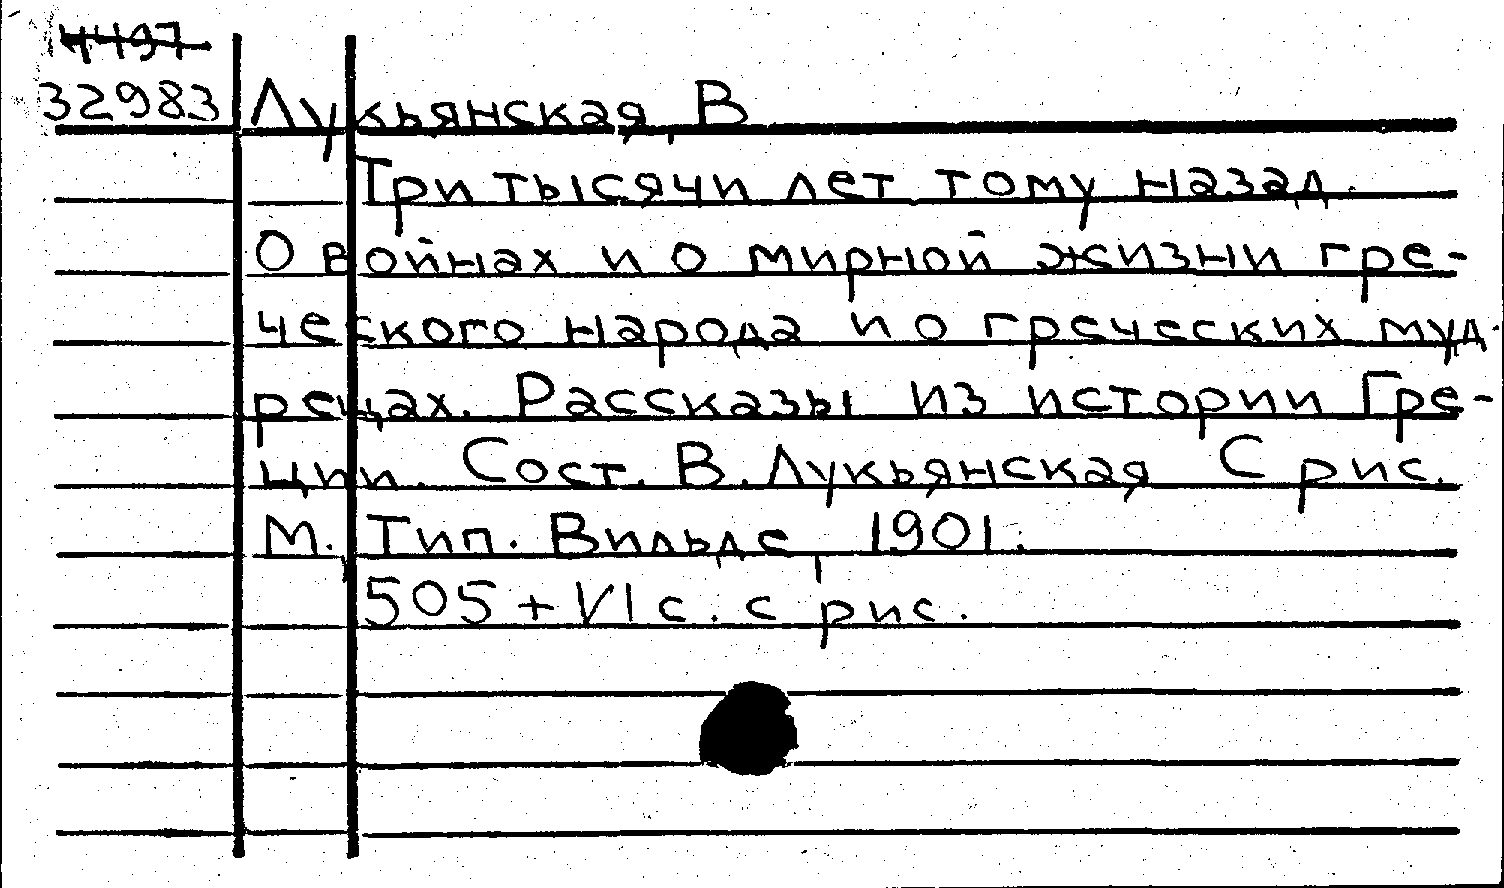 4497
32983 Лукьянская, В
Три тысячи лет тому назад.
О войнах и о мирной жизни гре-
ческого народа и о греческих муд-
рецах. Рассказы из истории Гре-
ции. Сост. В. Лукьянская С рис.
М., Тип. Вильде, 1901.
505 + VI с. с рис.